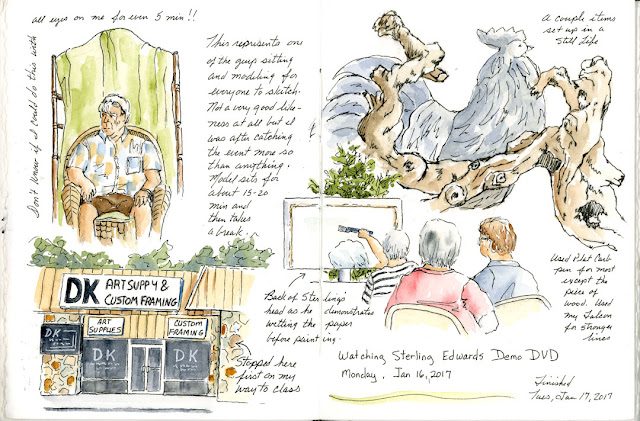 all eyes on me for even 5 min!!
Don't know if I would do this with
This represents one
of the guys sitting
and modeling for
everyone to sketch.
Not a very good like-
ness at all but I
was after catching
the event more so
than anything.
Model sits for
about 15-20
min and
then takes
a break.
A couple items
set up in a
Still Life
DK ART SUPPY &
CUSTOM FRAMING
ART
SUPPLIES
CUSTOM
FRAMING
DK
DK
DK
Stopped here
first on my
way to class
Back of Sterlings
head as he demonstrates
wetting the paper
before painting.
Used Pilot Carb
pen for most
except the
piece of
wood. Used
my Falcon
for stronger
lines
Watching Sterling Edwards Demo DVD
Monday. Jan 16, 2017
Finished
Tues, Jan 17, 2017